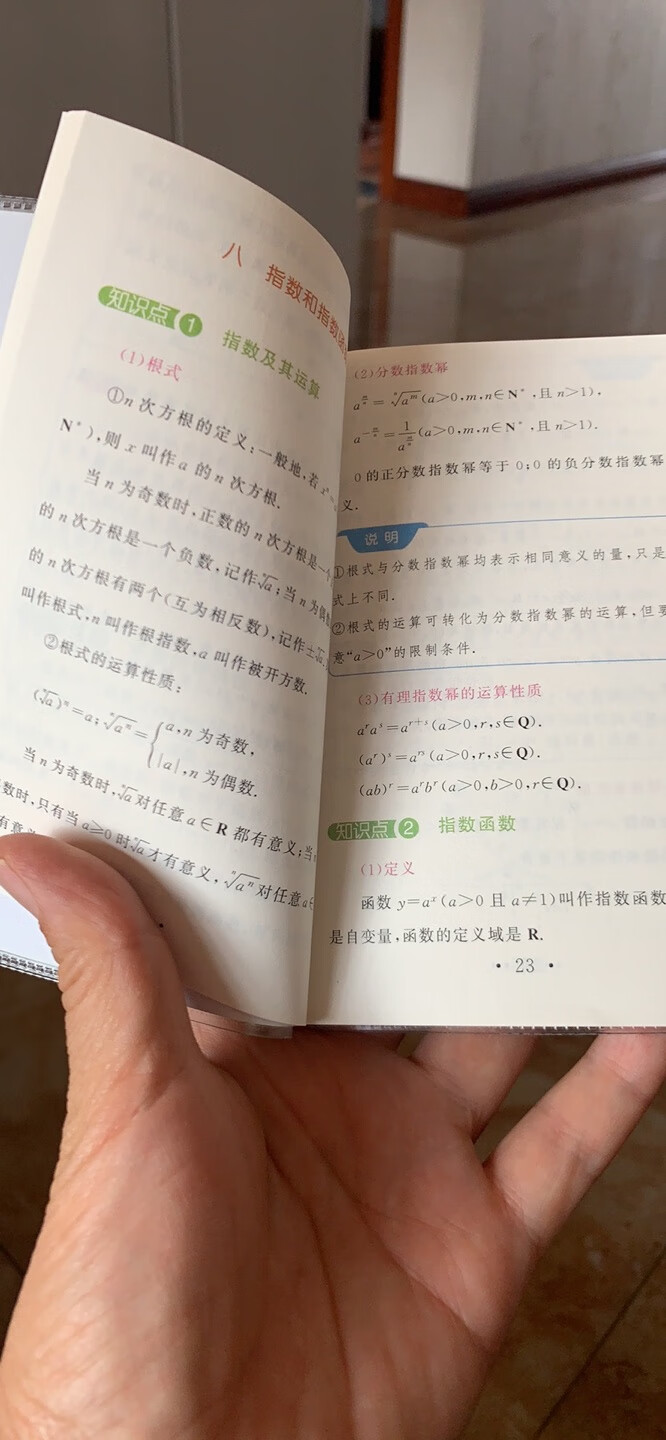 八 指数和指数
知识点1 指数及其运算
(1)根式
①n次方根的定义:一般地,若xⁿ=
N*),则x叫作a的n次方根.
当n为奇数时,正数的n次方根是一个
的n次方根是一个负数,记作ⁿ√a;当n为偶
的n次方根有两个(互为相反数),记作±ⁿ√a
叫作根式,n叫作根指数,a叫作被开方数.
②根式的运算性质:
(ⁿ√a)ⁿ=a; ⁿ√aⁿ={a,n为奇数,
|a|,n为偶数.
当n为奇数时,ⁿ√a对任意a∈R都有意义;当
数时,只有当a≥0时ⁿ√a才有意义,ⁿ√aⁿ对任意a∈
有意义
(2)分数指数幂
a^(m/n)=ⁿ√a^m(a>0,m,n∈N*,且n>1),
a^(-m/n)=1/a^(m/n)(a>0,m,n∈N*,且n>1).
0的正分数指数幂等于0;0的负分数指数幂
义.
说明
①根式与分数指数幂均表示相同意义的量,只是
式上不同.
②根式的运算可转化为分数指数幂的运算,但要
意“a>0”的限制条件.
(3)有理指数幂的运算性质
a^r a^s=a^(r+s)(a>0,r,s∈Q).
(a^r)^s=a^(rs)(a>0,r,s∈Q).
(ab)^r=a^r b^r(a>0,b>0,r∈Q).
知识点2 指数函数
(1)定义
函数y=a^x(a>0且a≠1)叫作指数函数
是自变量,函数的定义域是R.
• 23 •